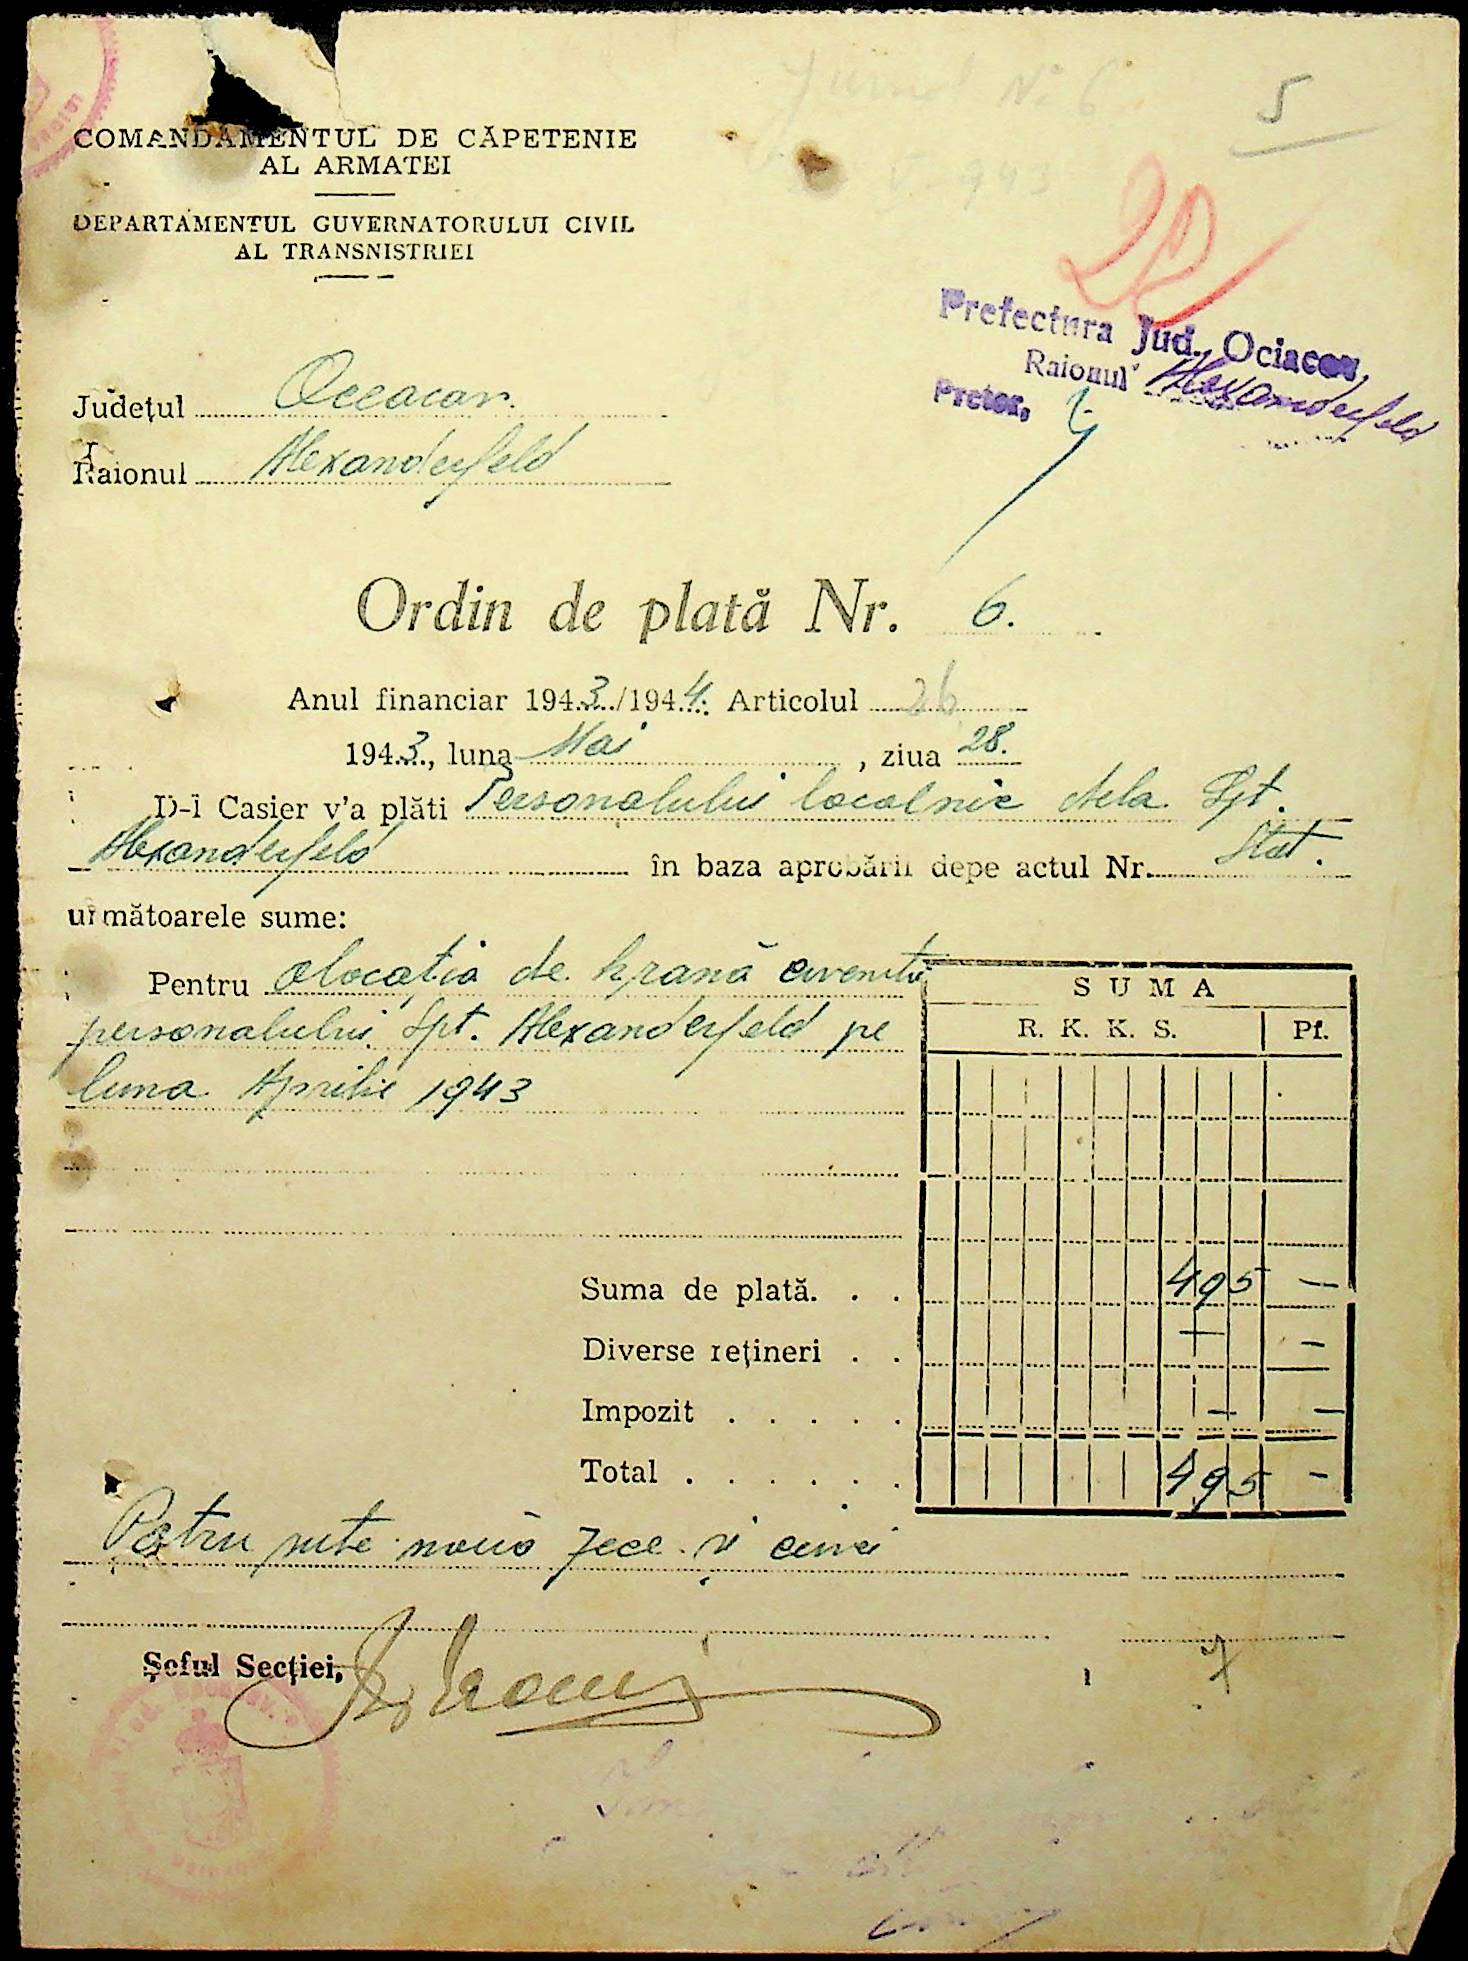 5
COMANDAMENTUL DE CĂPETENIE
AL ARMATEI
DEPARTAMENTUL GUVERNATORULUI CIVIL
AL TRANSNISTRIEI
Prefectura Jud. Ociacov
Raionul Alexanderfeld
Pretor,
Județul Oceacov.
Raionul Alexanderfeld
Ordin de plată Nr. 6.
Anul financiar 1943./1944. Articolul 26
1943., luna Mai, ziua 28.
D-l Casier v'a plăti Personalului localnic dela Spt.
Alexanderfeld în baza aprobării depe actul Nr. Stat.
următoarele sume:
Pentru alocația de hrană cuvenită
personalului Spt. Alexanderfeld pe
luna Aprilie 1943
SUMA
R. K. K. S. Pf.
Suma de plată. . . 495 —
Diverse rețineri . . — —
Impozit . . . . . — —
Total . . . . . . 495 —
Patru sute nouă zece și cinci
Șeful Secției,